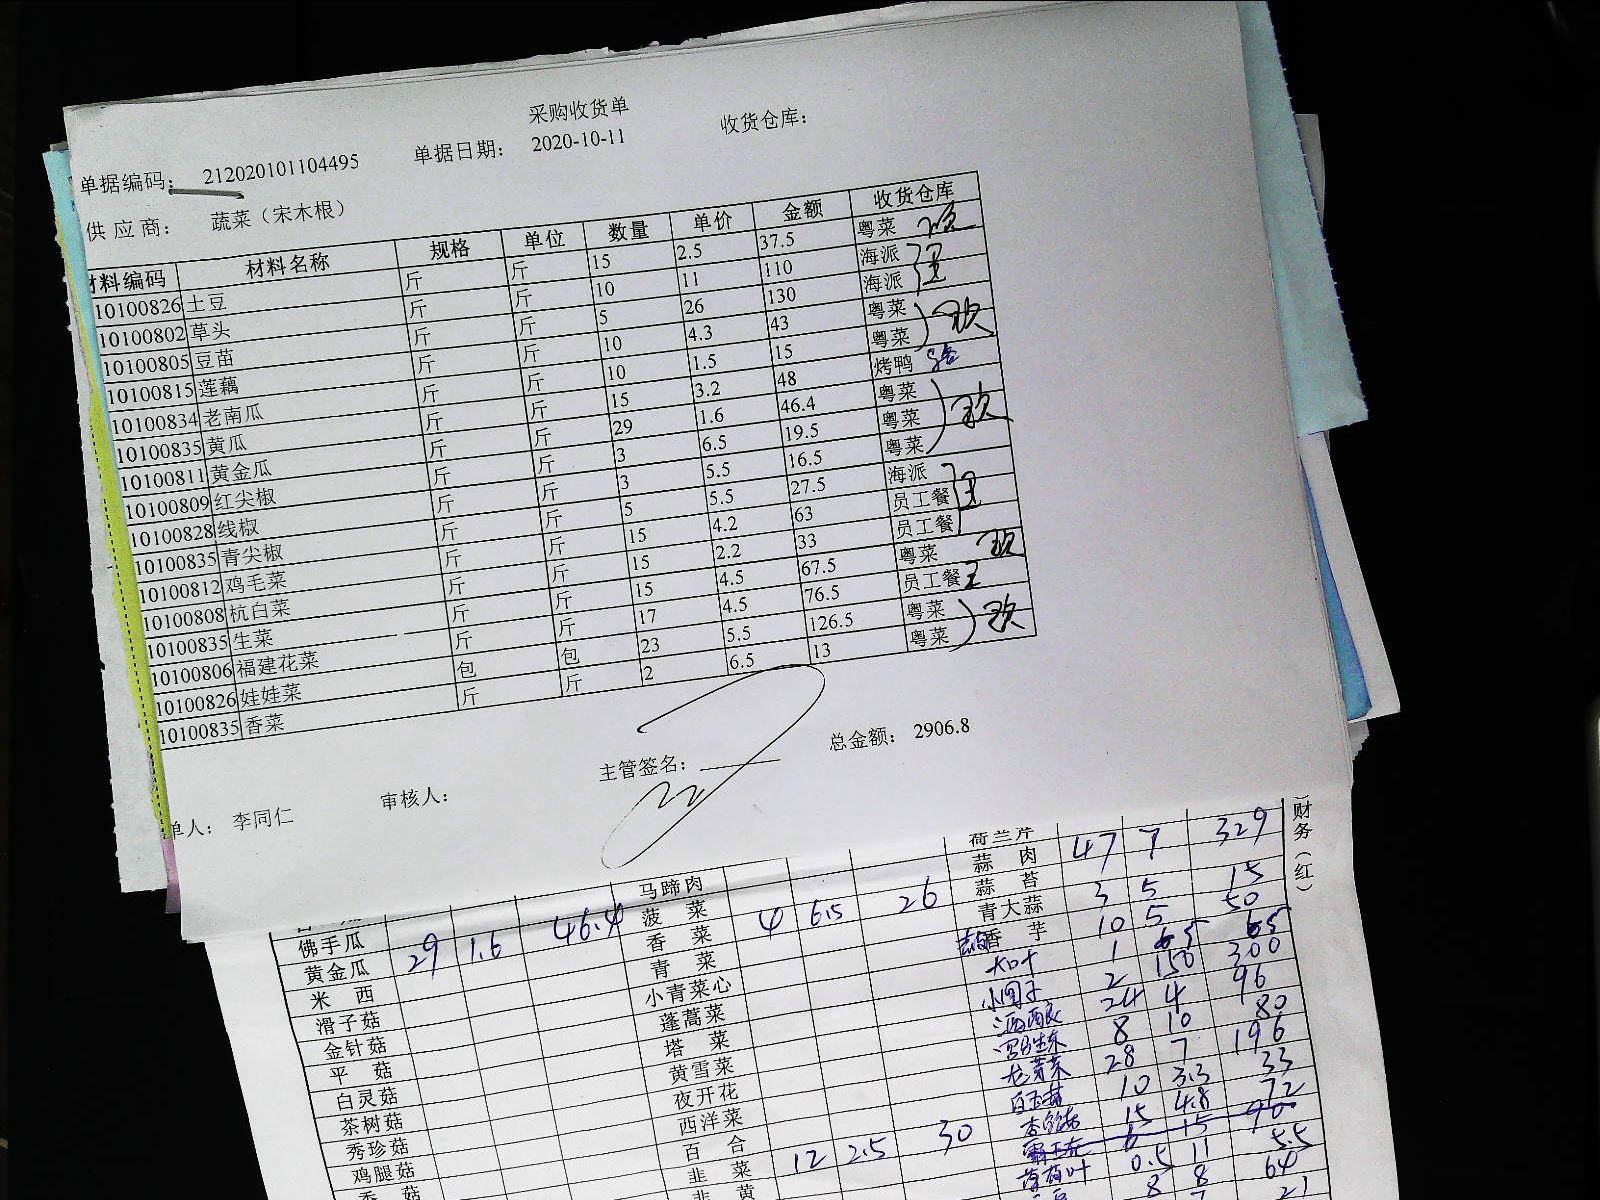 采购收货单
单据编码： 212020101104495 单据日期： 2020-10-11 收货仓库：
供 应 商： 蔬菜（宋木根）
材料编码 材料名称 规格 单位 数量 单价 金额 收货仓库
10100826 土豆 斤 斤 15 2.5 37.5 粤菜
10100802 草头 斤 斤 10 11 110 海派
10100805 豆苗 斤 斤 5 26 130 海派
10100815 莲藕 斤 斤 10 4.3 43 粤菜
10100834 老南瓜 斤 斤 10 1.5 15 粤菜
10100835 黄瓜 斤 斤 15 3.2 48 烤鸭
10100811 黄金瓜 斤 斤 29 1.6 46.4 粤菜
10100809 红尖椒 斤 斤 3 6.5 19.5 粤菜
10100828 线椒 斤 斤 3 5.5 16.5 粤菜
10100835 青尖椒 斤 斤 5 5.5 27.5 海派
10100812 鸡毛菜 斤 斤 15 4.2 63 员工餐
10100808 杭白菜 斤 斤 15 2.2 33 员工餐
10100835 生菜 斤 斤 15 4.5 67.5 粤菜
10100806 福建花菜 斤 斤 17 4.5 76.5 员工餐
10100826 娃娃菜 包 包 23 5.5 126.5 粤菜
10100835 香菜 斤 斤 2 6.5 13 粤菜
单人： 李同仁 审核人： 主管签名： 总金额： 2906.8
荷兰芹
马蹄肉 蒜 肉 47 7 329
佛手瓜 菠 菜 4 6.5 26 蒜 苔 3 5 15
黄金瓜 29 1.6 46.4 香 菜 青大蒜 10 5 50
米 西 青 菜 香 芋 1 65 65
滑子菇 小青菜心 2 150 300
金针菇 蓬蒿菜 小圆子 24 4 96
平 菇 塔 菜 酒酿 8 10 80
白灵菇 黄雪菜 28 7 196
茶树菇 夜开花 龙芽菜 10 3.3 33
秀珍菇 西洋菜 白玉菇 15 4.8 72
鸡腿菇 百 合 6 15 90
香 菇 韭 菜 12 2.5 30 0.5 11 5.5
韭 黄 8 8 64
7 21
财务（红）